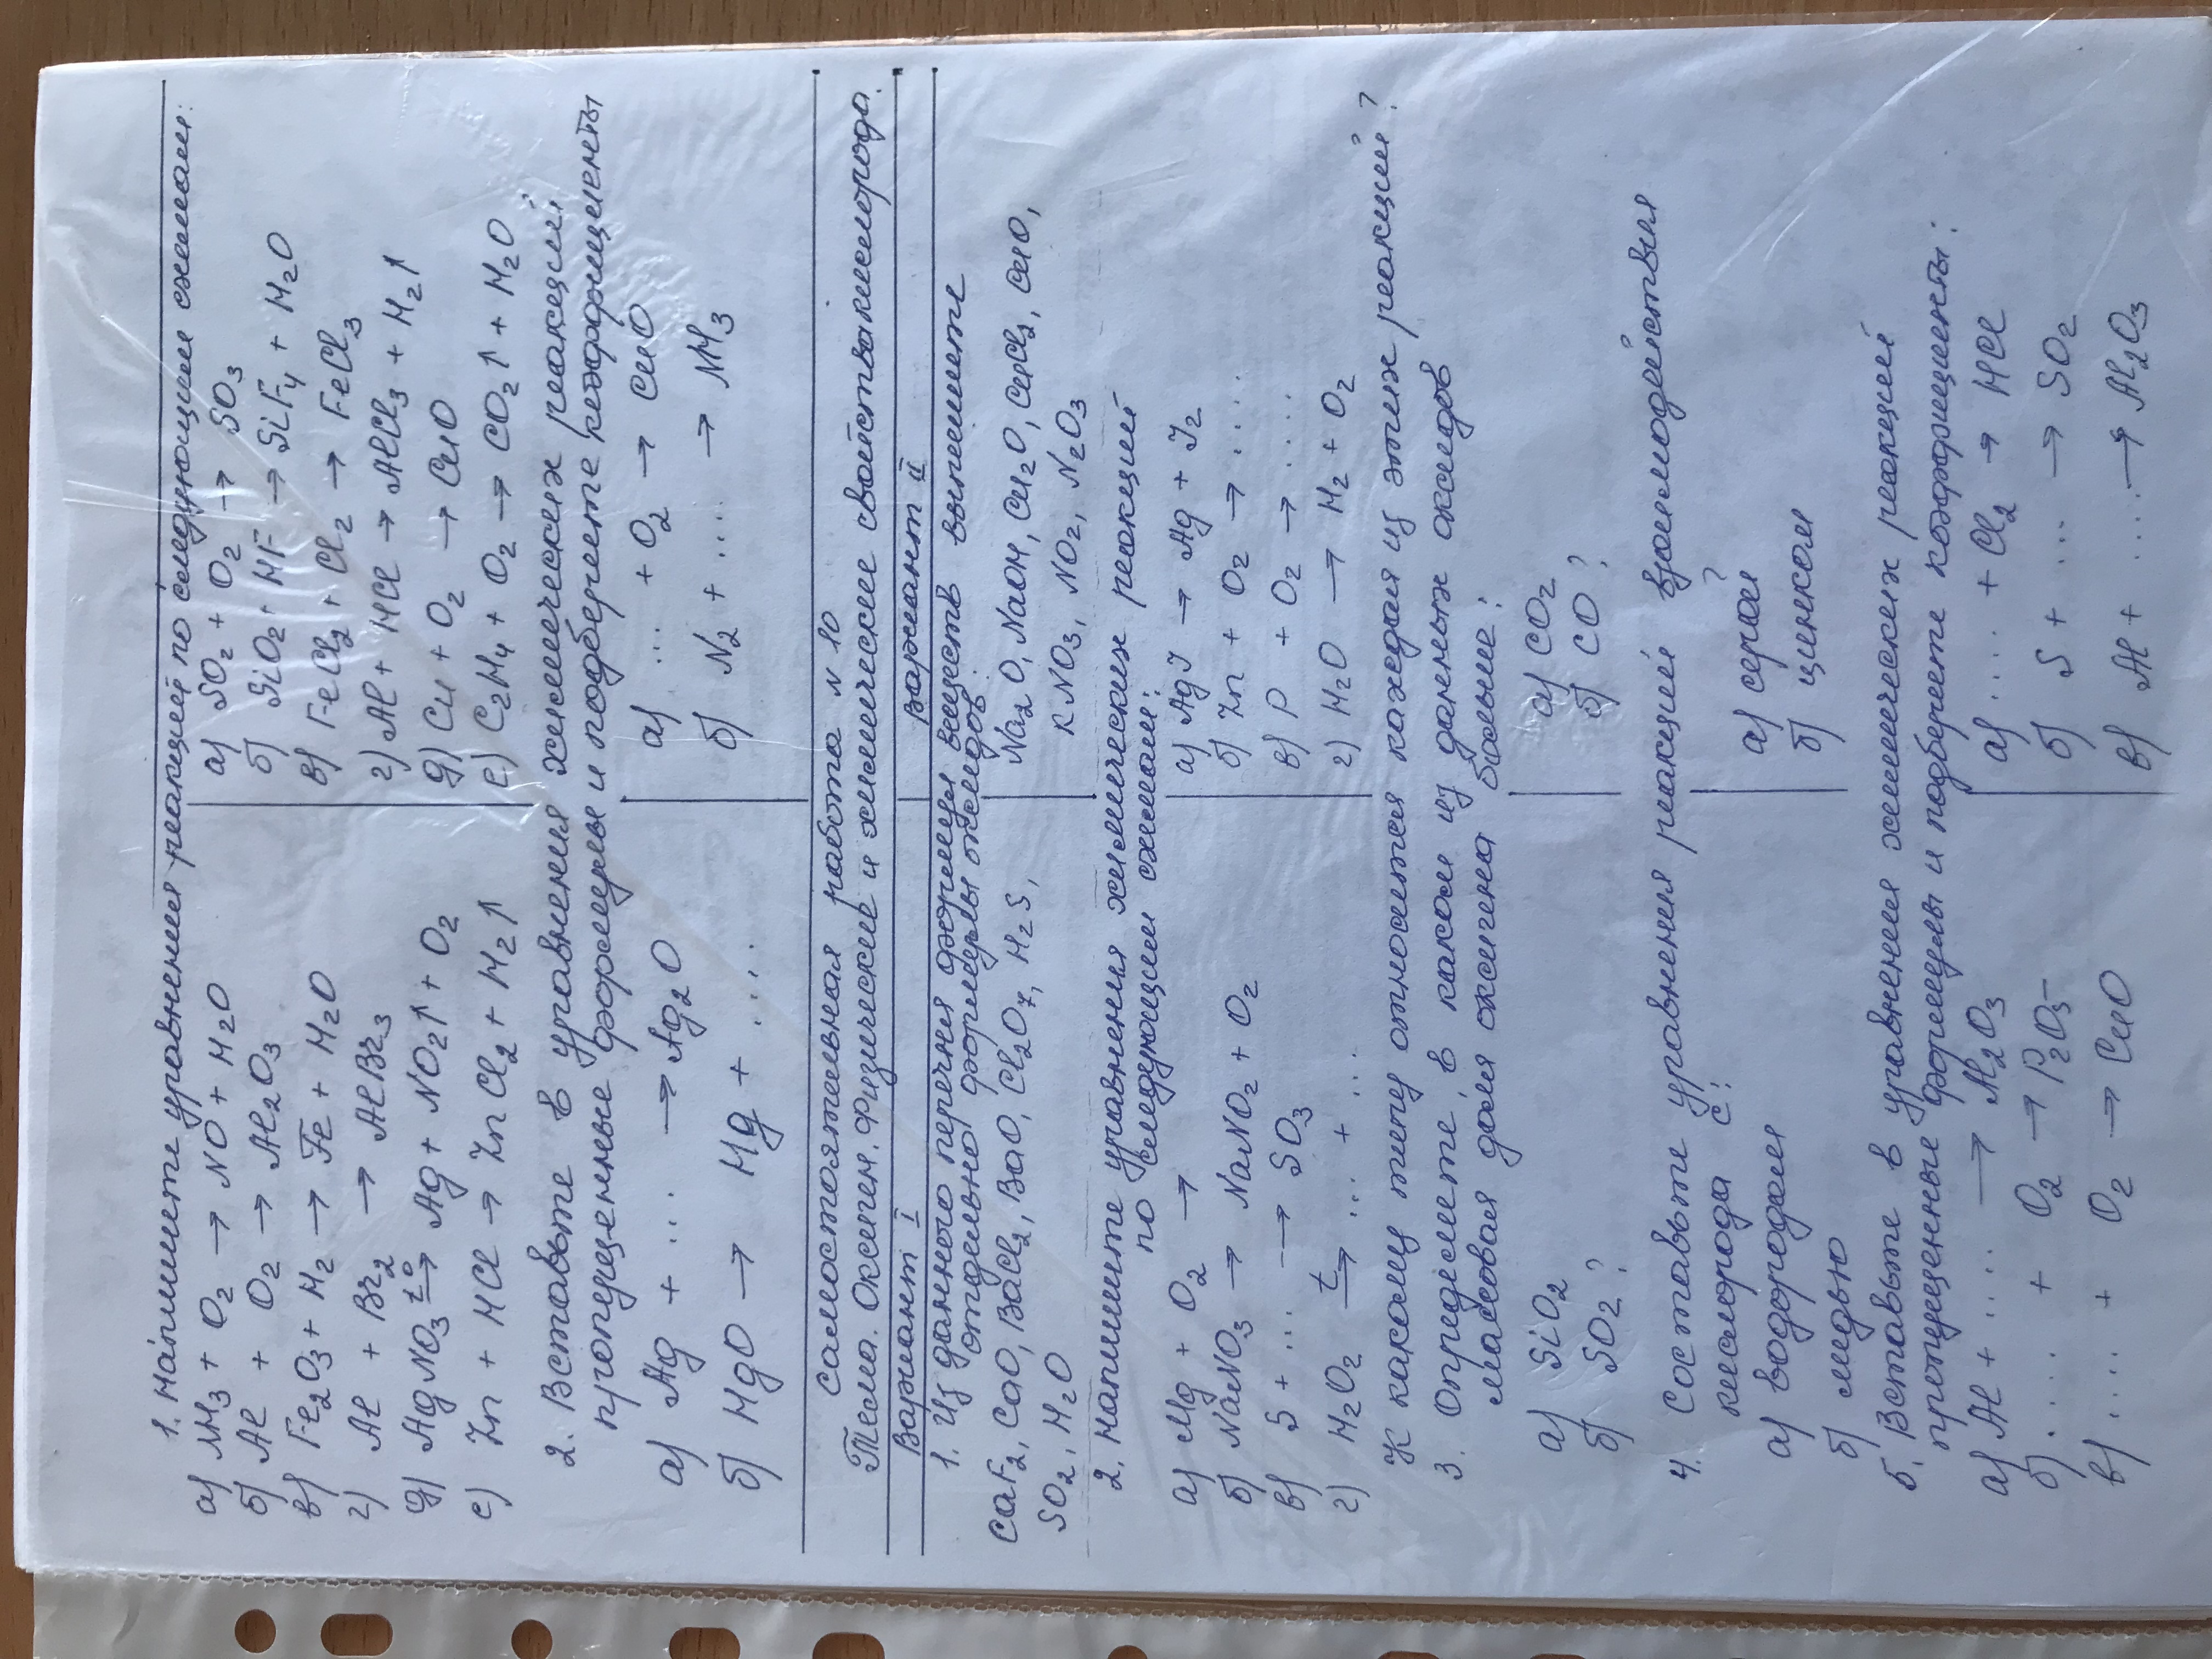 1. Напишите уравнения реакций по следующим схемам:
а) NH3 + O2 → NO + H2O
б) Al + O2 → Al2O3
в) Fe2O3 + H2 → Fe + H2O
г) Al + Br2 → AlBr3
д) AgNO3 t°→ Ag + NO2↑ + O2
е) Zn + HCl → ZnCl2 + H2↑
а) SO2 + O2 → SO3
б) SiO2 + HF → SiF4 + H2O
в) FeCl2 + Cl2 → FeCl3
г) Al + HCl → AlCl3 + H2↑
д) Cu + O2 → CuO
е) C2H4 + O2 → CO2↑ + H2O
2. Вставьте в уравнения химических реакций
пропущенные формулы и подберите коэффициенты
а) Ag + ... → Ag2O
б) HgO → Hg + ....
а) ... + O2 → CuO
б) N2 + .... → NH3
Самостоятельная работа N 10
Тема. Оксиген. Физические и химические свойства кислорода.
Вариант I
Вариант II
1. Из данного перечня формул веществ выпишите
отдельно формулы оксидов:
CaF2, CaO, BaCl2, BaO, Cl2O7, H2S,
SO2, H2O
Na2O, NaOH, Cu2O, CuCl2, CuO,
KNO3, NO2, N2O3
2. Напишите уравнения химических реакций
по следующим схемам:
а) Mg + O2 →
б) NaNO3 → NaNO2 + O2
в) S + ... → SO3
г) H2O2 t→ ... + ...
а) AgI → Ag + I2
б) Zn + O2 → ....
в) P + O2 → ....
г) H2O → H2 + O2
К какому типу относится каждая из этих реакций?
3. Определите, в каком из данных оксидов
массовая доля оксигена больше:
а) SiO2
б) SO2?
а) CO2
б) CO?
4. Составьте уравнения реакций взаимодействия
кислорода с:
а) водородом
б) медью
а) серой
б) цинком
5. Вставьте в уравнения химических реакций
пропущенные формулы и подберите коэффициенты:
а) Al + ... → Al2O3
б) .... + O2 → P2O5
в) .... + O2 → CuO
а) ... + Cl2 → HCl
б) S + ... → SO2
в) Al + .... → Al2O3